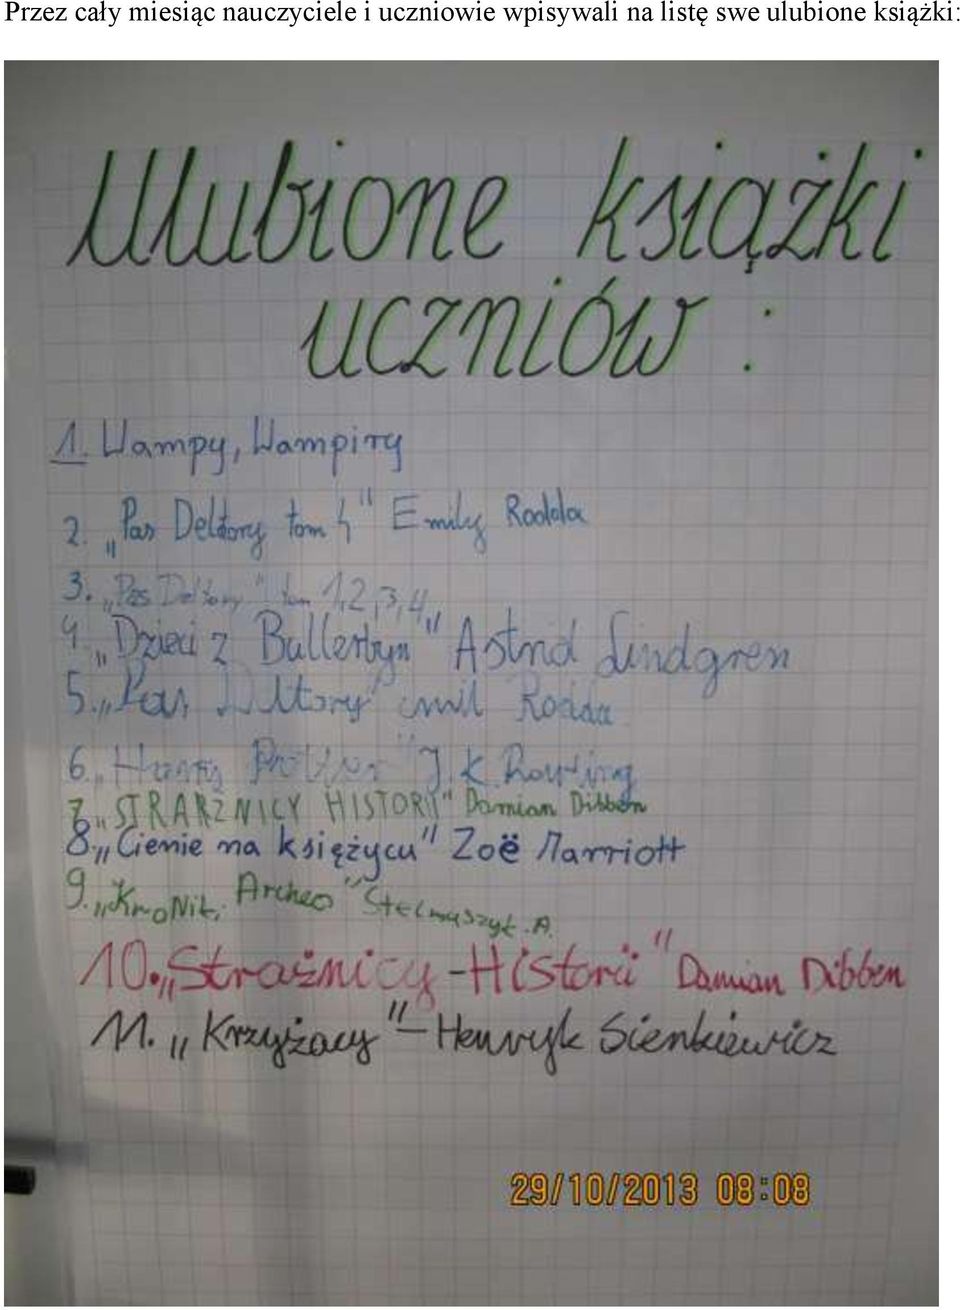 Przez cały miesiąc nauczyciele i uczniowie wpisywali na listę swe ulubione książki:
Ulubione książki
uczniów :
1. Wampy, Wampiry
2. „Pas Deltory tom 4" Emily Rodda
3. „Pas Deltory" tom 1,2,3,4
4. „Dzieci z Bullerbyn" Astrid Lindgren
5. „Pas Deltory" emil Rodda
6. „Harry Potter" J.K. Rowling
7. „STRARZNICY HISTORII" Damian Dibben
8. „Cienie na księżycu" Zoë Marriott
9. „KroNik. Archeo" Stelmaszyk. A.
10. „Strażnicy - Historii" Damian Dibben
11. „Krzyżacy" - Henryk Sienkiewicz
29/10/2013 08:08